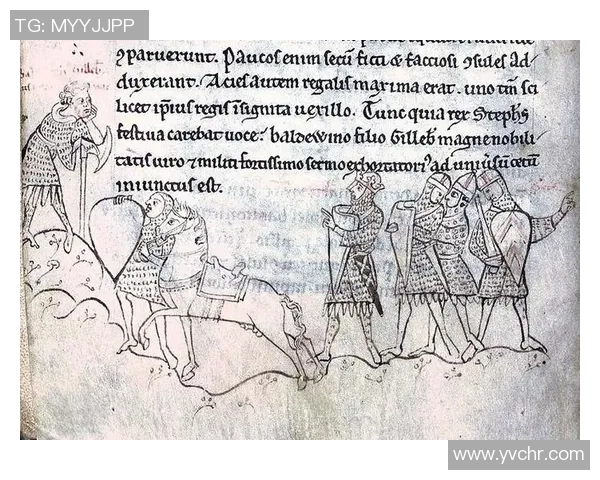 TG: MYYJJPP
⁊paruerunt. Paucos enim secū ficti & factiosi ɔsules ad
duxerant. Acies autem regalis maxima erat. uno tm̄ sci
licet ip̄ius regis īsignita uexillo. Tunc quia rex Stephs
festiua carebat uoce: baldewino filio Gilleb magne nobili
tatis uiro & militi fortissimo sermo exhortatori⁹ ad uniūsū cetū
iniunctus est.
www.yvchr.com